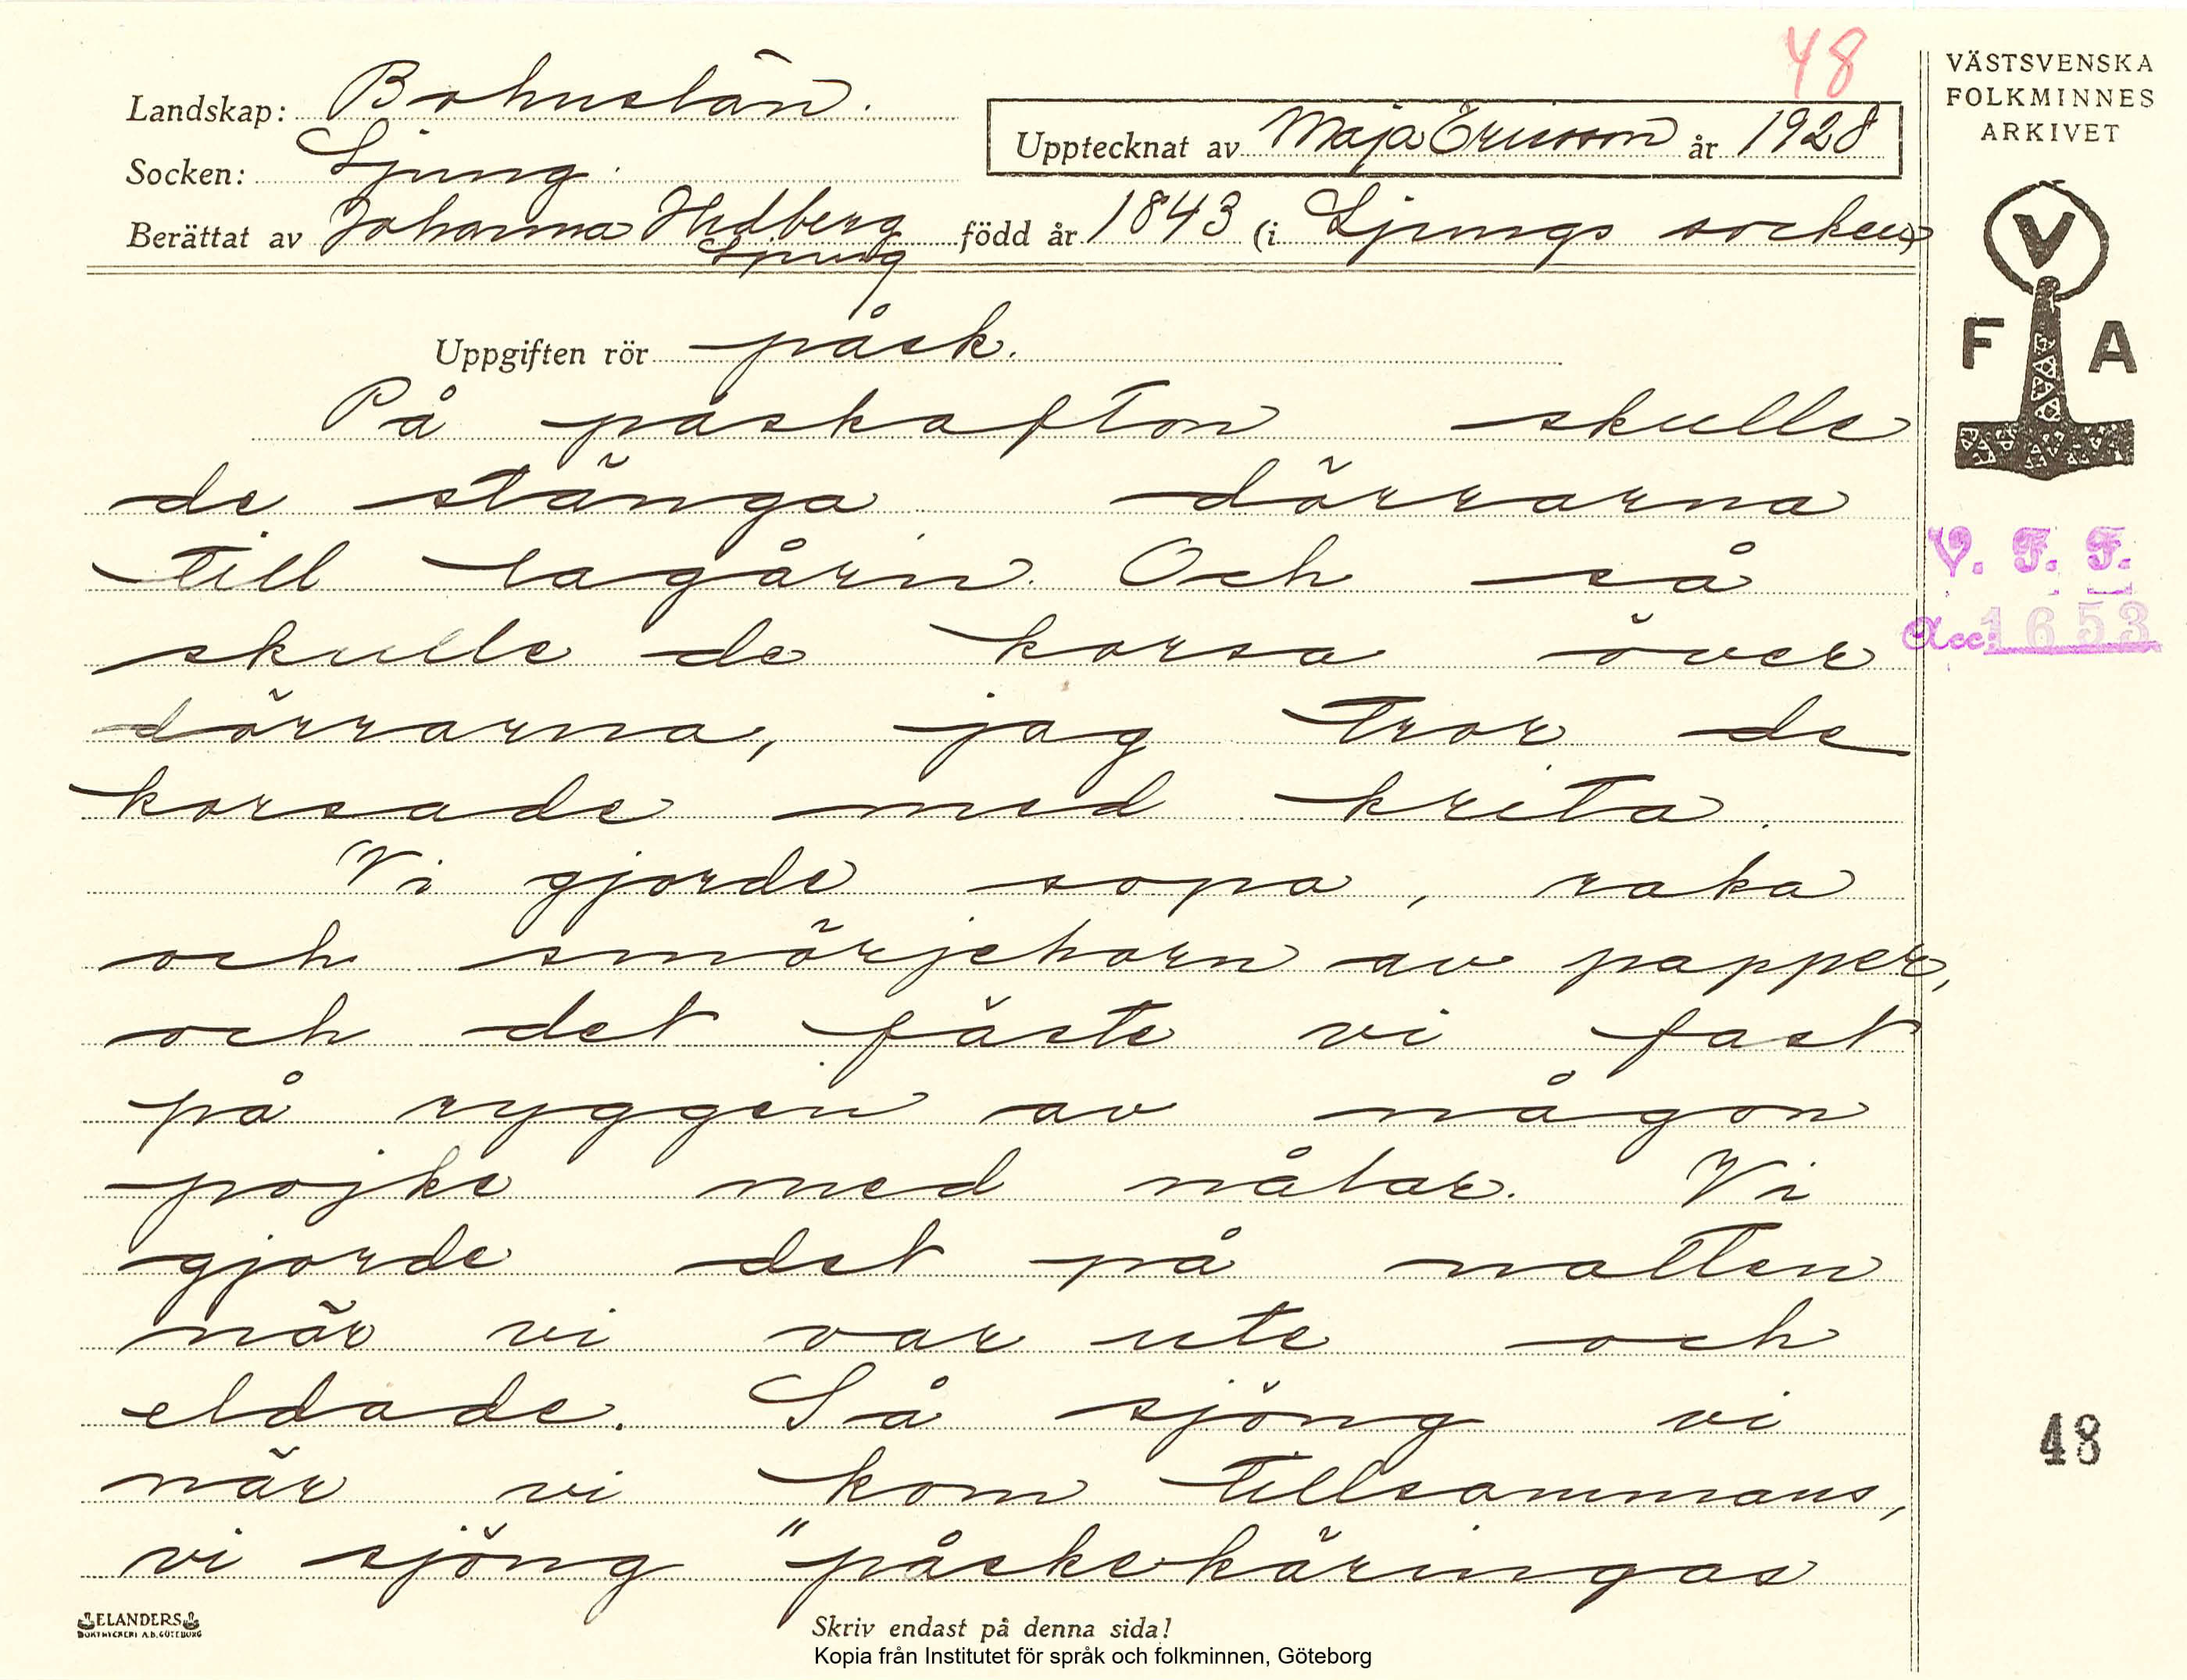 48
Landskap: Bohuslän.
Socken: Ljung.
Upptecknat av Maja Ericsson år 1928
Berättat av Johanna Hedberg född år 1843 (i Ljungs socken)
Ljung
VÄSTSVENSKA
FOLKMINNES
ARKIVET
V
F A
Uppgiften rör påsk.
På påskafton skulle
de stänga dörrarna
till lagårn. Och så
skulle de korsa över
dörrarna, jag tror de
korsade med krita.
Vi gjorde sopa, raka
och smörjehorn av papper,
och det fäste vi fast
på ryggen av någon
pojke med nålar. Vi
gjorde det på natten
när vi var ute och
eldade. Så sjöng vi
när vi kom tillsammans,
vi sjöng "påskekäringas
V. F. F.
Acc: 1653
48
ELANDERS
BOKTRYCKERI A.B. GÖTEBORG
Skriv endast på denna sida!
Kopia från Institutet för språk och folkminnen, Göteborg